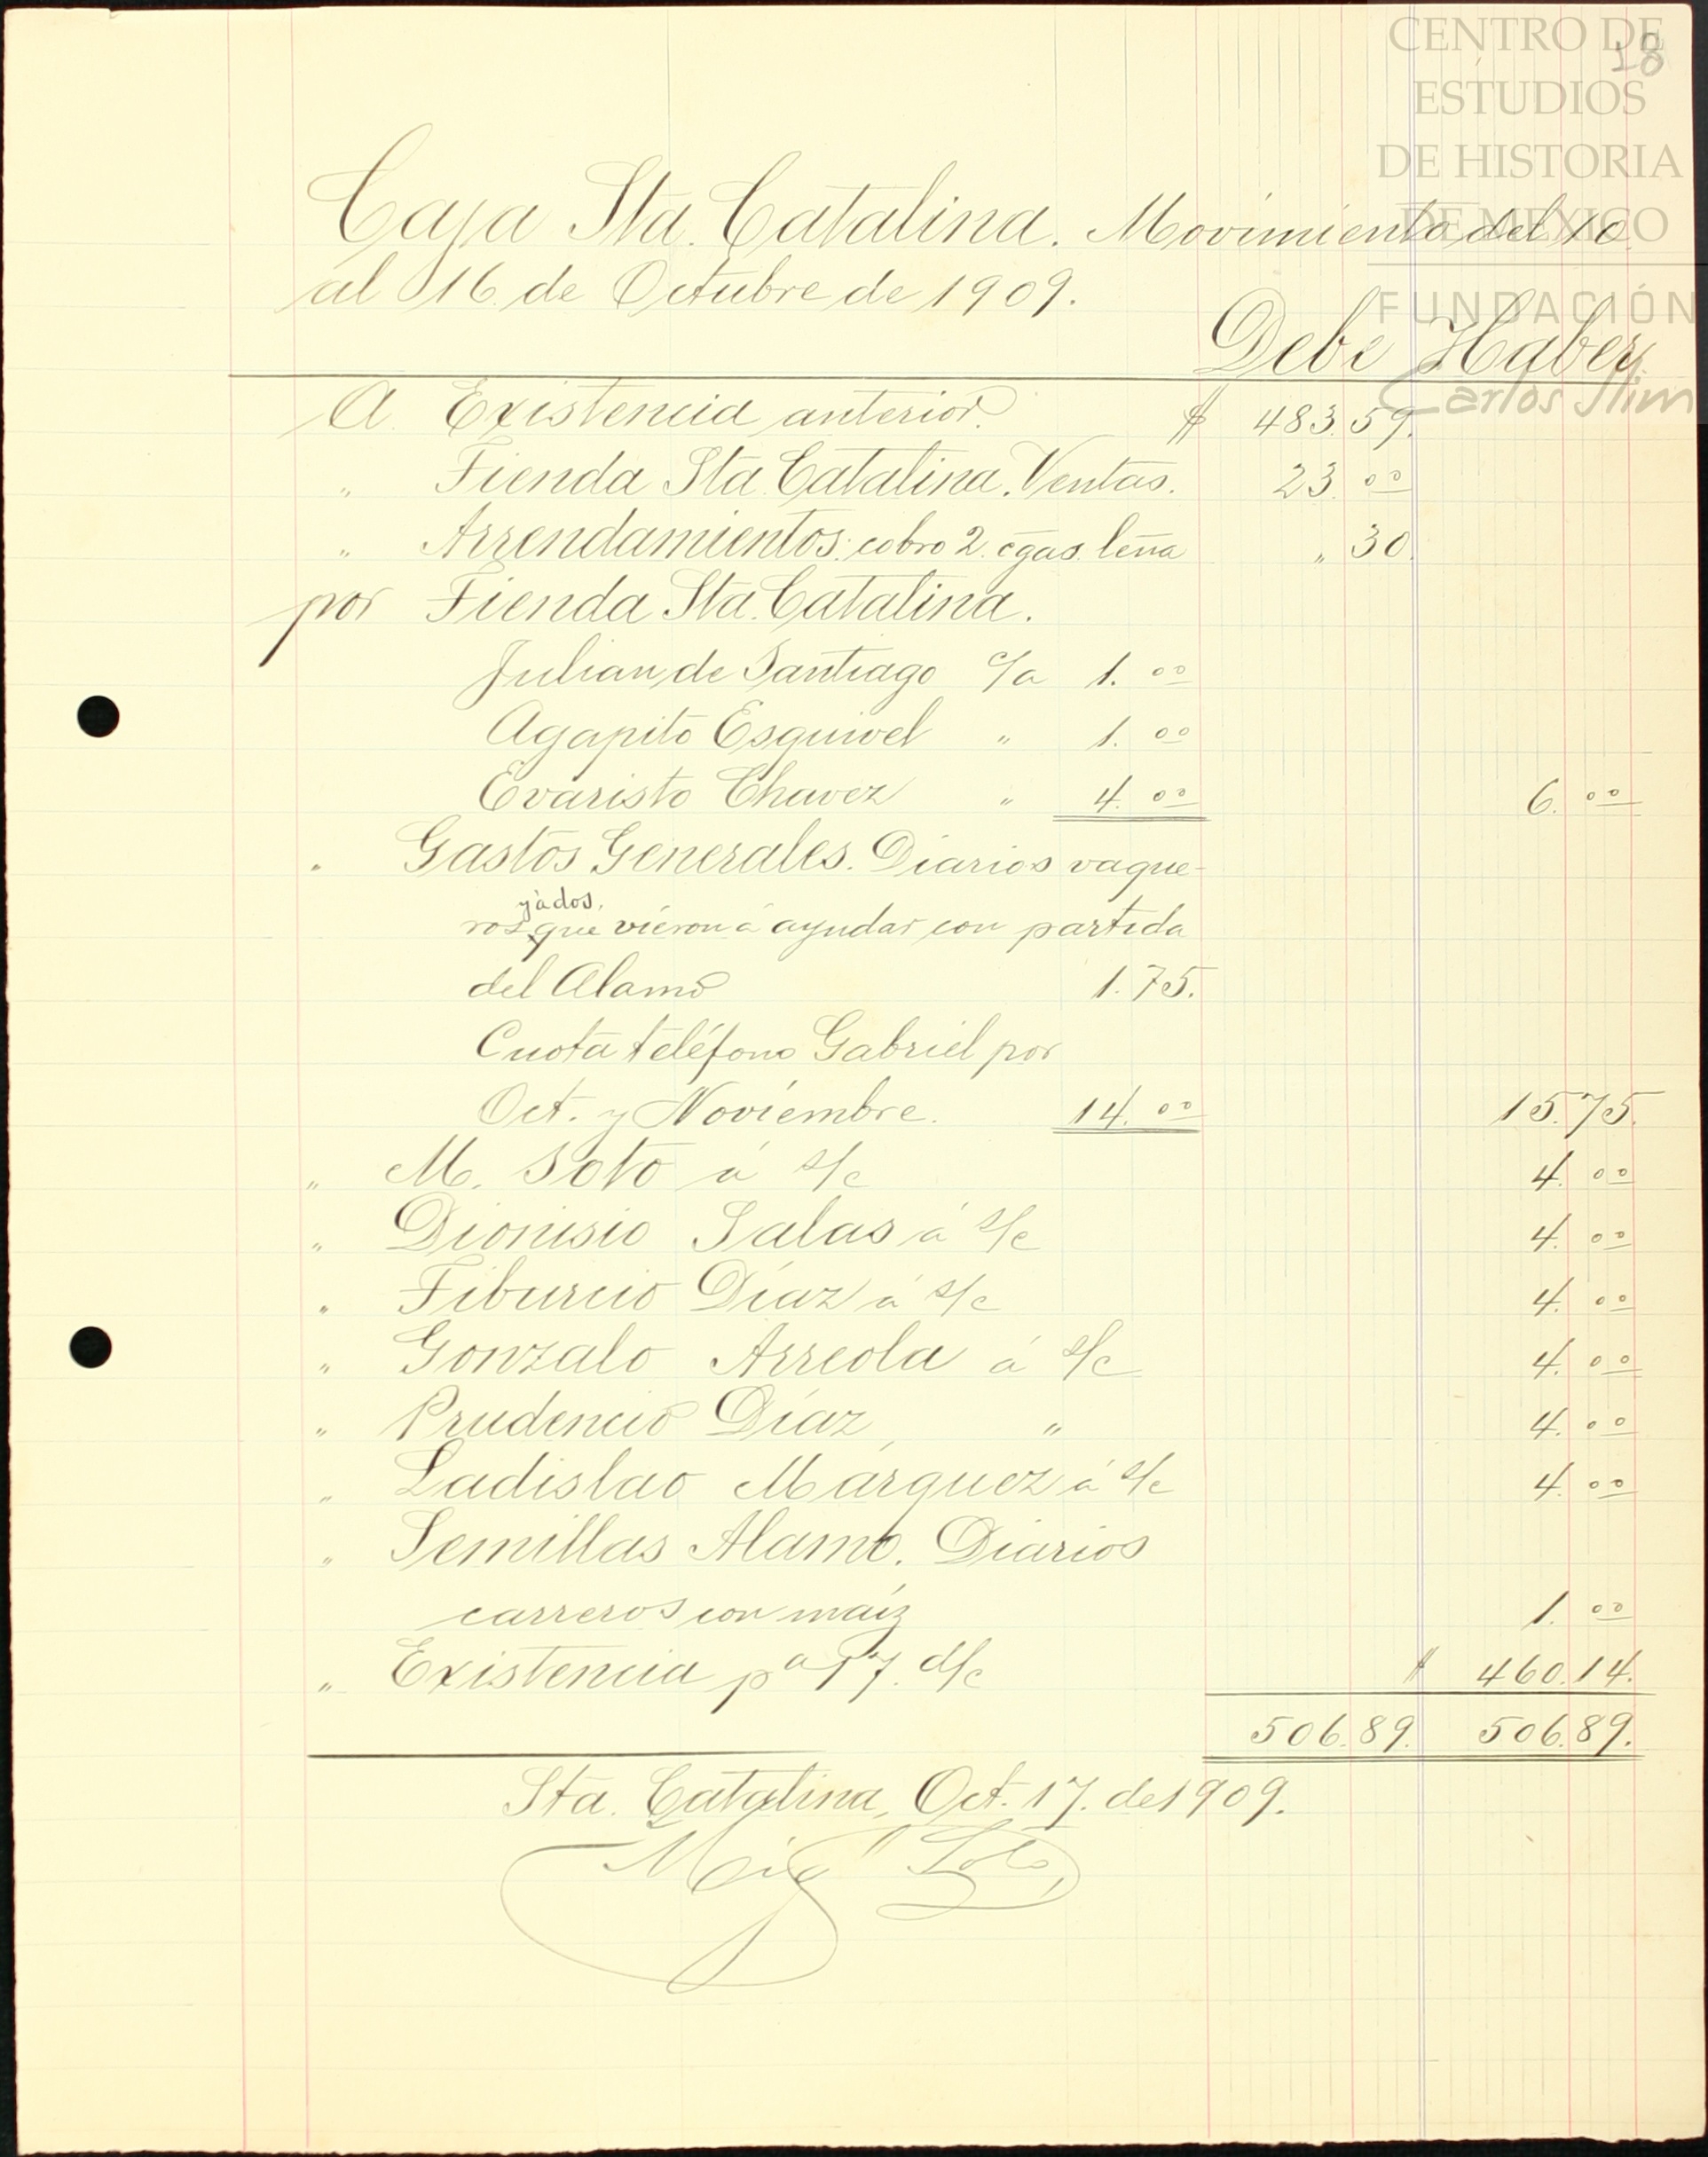 CENTRO DE
ESTUDIOS
DE HISTORIA
DE MÉXICO
FUNDACIÓN
Carlos Slim
18
Caja Sta. Catalina. Movimiento del 10
al 16 de Octubre de 1909.
Debe Haber
A Existencia anterior. $ 483.59.
" Tienda Sta. Catalina. Ventas. 23.00
" Arrendamientos: cobro 2. cgas. leña " 30.
por Tienda Sta. Catalina.
Julian de Santiago c/a 1.00
Agapito Esquivel " 1.00
Evaristo Chavez " 4.00 6.00
" Gastos Generales. Diarios vaque-
yádos.
ros que vieron á ayudar con partida
del Alamo 1.75.
Cuota teléfono Gabriel por
Oct. y Noviembre. 14.00 15.75.
" M. Soto á s/c 4.00
" Dionisio Salas á s/c 4.00
" Tiburcio Díaz á s/c 4.00
" Gonzalo Arreola á s/c 4.00
" Prudencio Díaz " 4.00
" Ladislao Marquez á s/c 4.00
" Semillas Alamo. Diarios
carreros con maíz 1.00
" Existencia pa 17. d/c $ 460.14.
506.89. 506.89.
Sta. Catalina, Oct. 17. de 1909.
Mig Soto